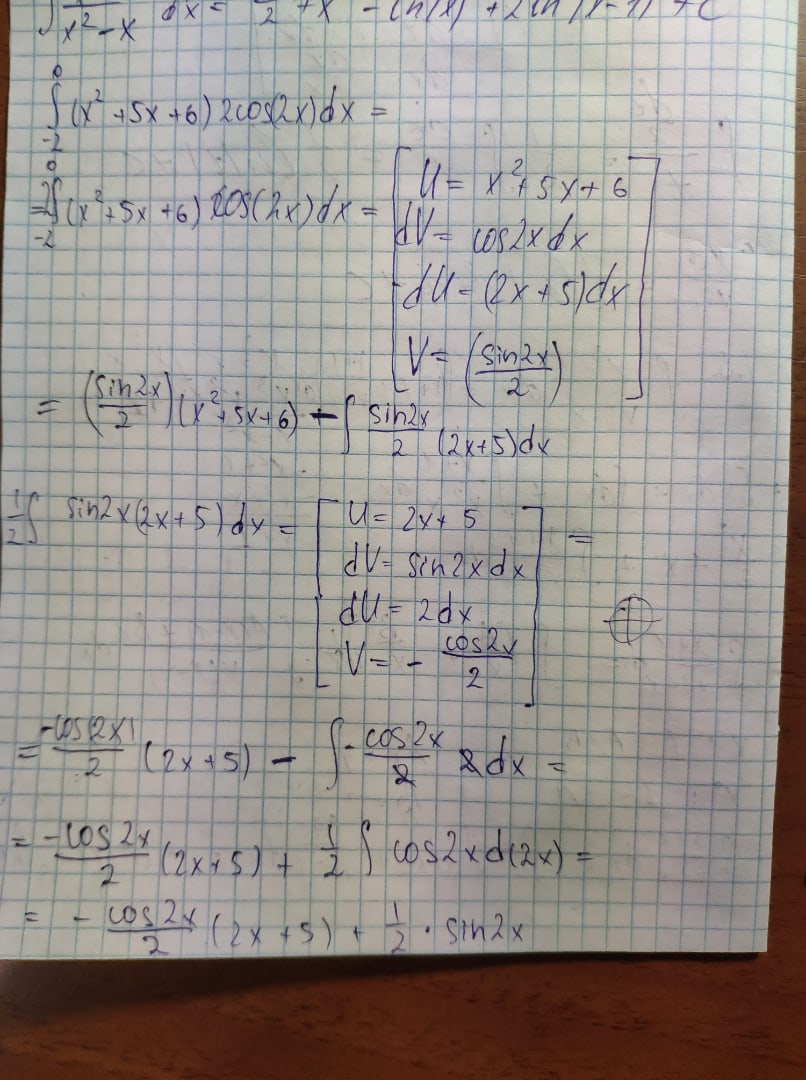 ∫ x²-x dx = 2 + x - ln(x) + 2 ln(x-1) + C
∫₋₂⁰ (x² + 5x + 6) 2cos(2x) dx =
= 2∫₋₂⁰ (x² + 5x + 6) cos(2x) dx = [ U = x² + 5x + 6
dV = cos2x dx
dU = (2x + 5) dx
V = (sin2x/2) ]
= (sin2x/2)(x² + 5x + 6) - ∫ sin2x/2 (2x+5) dx
1/2 ∫ sin2x(2x+5) dx = [ U = 2x + 5
dV = sin2x dx
dU = 2dx
V = - cos2x/2 ] =
= -cos(2x)/2 (2x+5) - ∫ - cos2x/2 2 dx =
= -cos2x/2 (2x+5) + 1/2 ∫ cos2x d(2x) =
= - cos2x/2 (2x+5) + 1/2 · sin2x